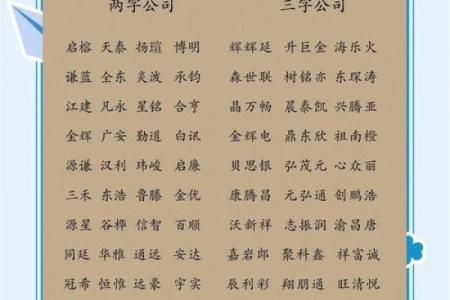 两字公司 三字公司
启榕 天泰 扬瑄 博明 辉辉延 升巨金 海乐火
谦蓝 全东 炎波 承钧 森世联 树铭亦 东琛涛
江建 凡永 星铭 合亨 晶万畅 晨泰凯 兴腾亚
金辉 广安 勤道 白讯 金辉电 鼎东欣 祖南橙
源谦 汉利 玮峻 启廉 贝思银 弘茂元 心众丽
三禾 东浩 鲁滕 金优 康腾昌 元弘通 创鹏浩
源星 谷桦 信智 百顺 沃新祥 志振润 渝昌唐
同廷 华雅 通远 安达 嘉岩郎 聚科鑫 祥富诚
冠希 恒惟 远豪 宇实 辰利彩 翔朋通 旺清悦